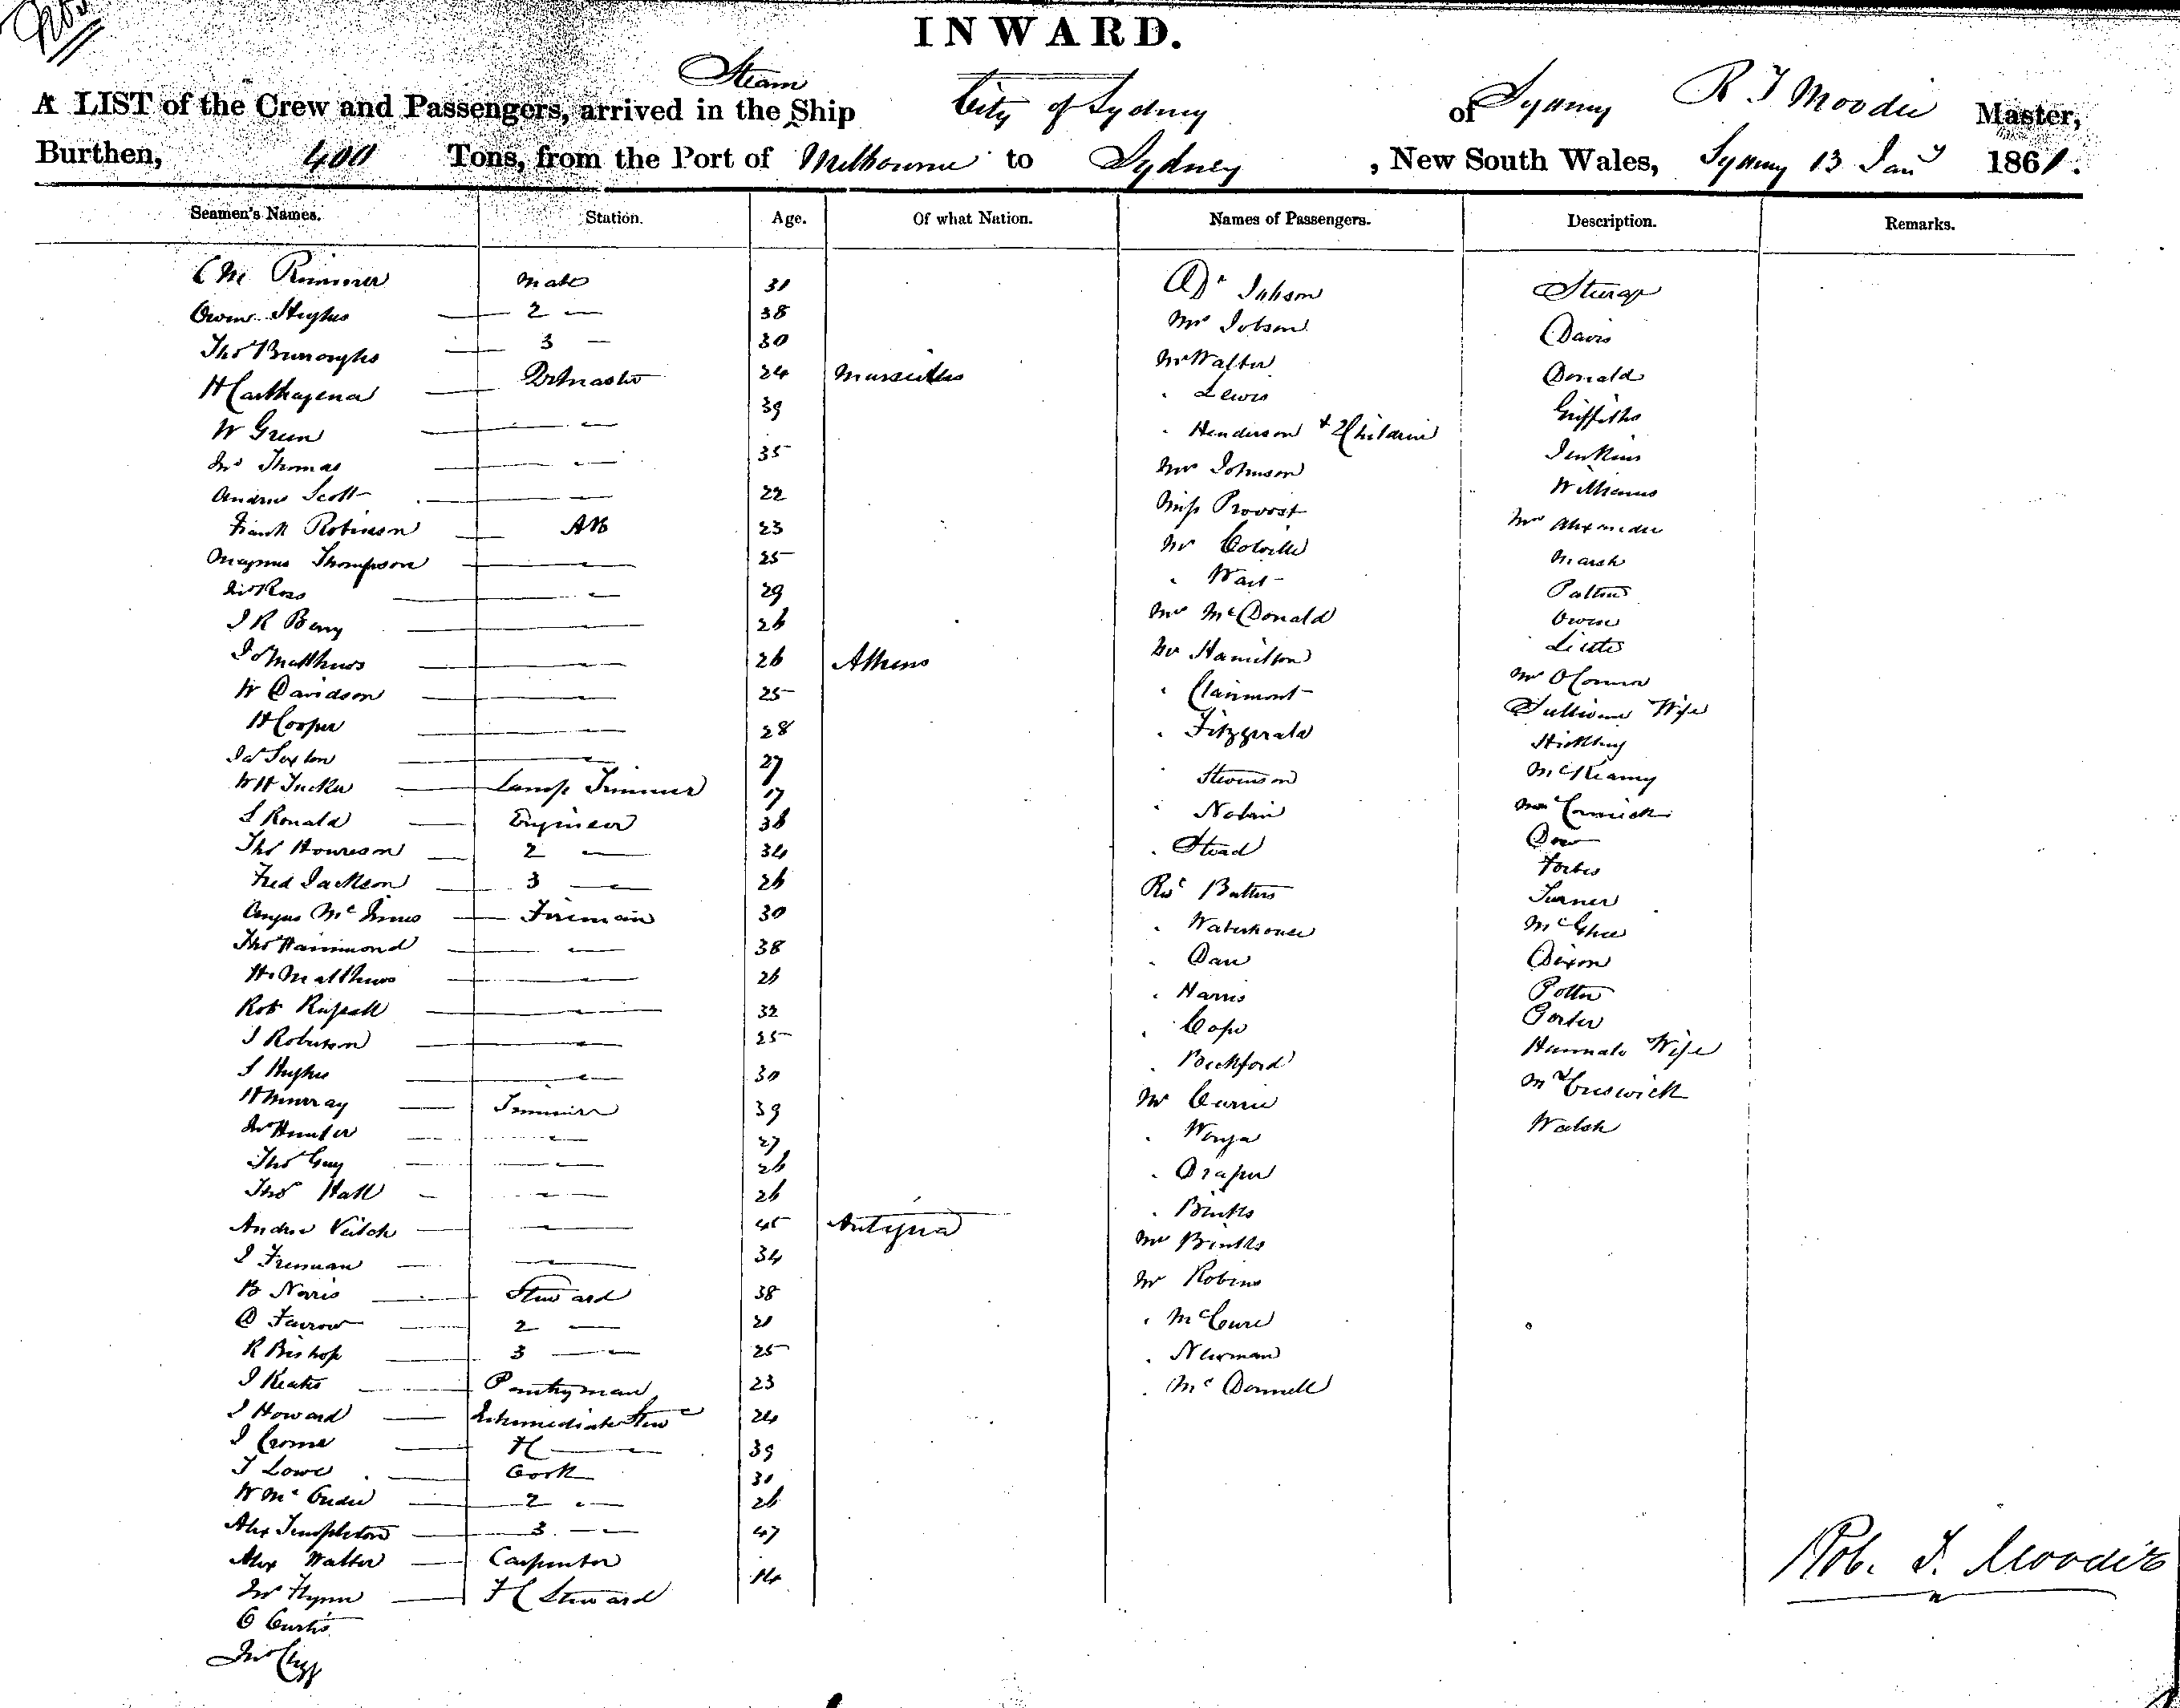 INWARD.
Steam
A LIST of the Crew and Passengers, arrived in the Ship City of Sydney of Sydney R T Moodie Master,
Burthen, 400 Tons, from the Port of Melbourne to Sydney , New South Wales, Sydney 13 Jany 1861.
Seamen's Names. Station. Age. Of what Nation. Names of Passengers. Description. Remarks.
C M Rimmer Mate 31 Dr Jobson Steerage
Owen Hughes 2 — 38 Mrs Jobson Davis
Thos Burroughs 3 — 30 Mr Walter Donald
H Carthagena 24 Marseilles " Lewis Griffiths
W Green — 39 " Henderson + 2 Children Jenkins
Jno Thomas — 35 Mrs Johnson Williams
Andrew Scott — 22 Miss Provost Mrs Alexander
Frank Robinson AB 23 Mr Colville Marsh
Magnus Thompson — 25 " Wait
Jno Ross — 29 Mrs McDonald Owen
J R Berry — 26 Mr Hamilton
Jas Matthews — 26 Athens " Clairmont Mr OConnor
W Davidson — 25 " Fitzgerald Sullivan Wife
H Cooper — 28 " Stevenson
Jas Sexton — 27 " Nolan
W H Tucker Lamp Trimmer 17 " Stead McCormick
J Ronald Engineer 36 Revd Butters Dow
Thos Houreson 2 — 34 " Waterhouse Forbes
Fred Jackson 3 — 26 " Dare Turner
Angus McInnes Fireman 30 " Harris McGhee
Thos Hammond — 38 " Cope Dixon
H Matthews — 26 " Beckford Potter
Robt Russell — 32 Mr Currie Porter
J Robertson — 25 Hannah Wife
J Hughes — 30 " Draper
H Murray Trimmer 39 " Binks Walsh
Jno Hunter — 27 Mrs Binks
Thos Guy — 26 Mr Robins
Thos Hall — 26 " McClure
Andrew Veitch — 45 Antigua " Newman
J Freeman — 34 " McDonnell
B Norris Steward 38
D Farrow 2 — 21
R Bishop 3 — 25
J Keates Pantryman 23
J Howard Intermediate Stewd 24
J Crome FC — 39
T Lowe Cook 31
2 — 26
Alex Templeton 3 — 47
Alex Walter Carpenter
Jno Flynn FC Steward 14
C Curtis
Rob. T. Moodie